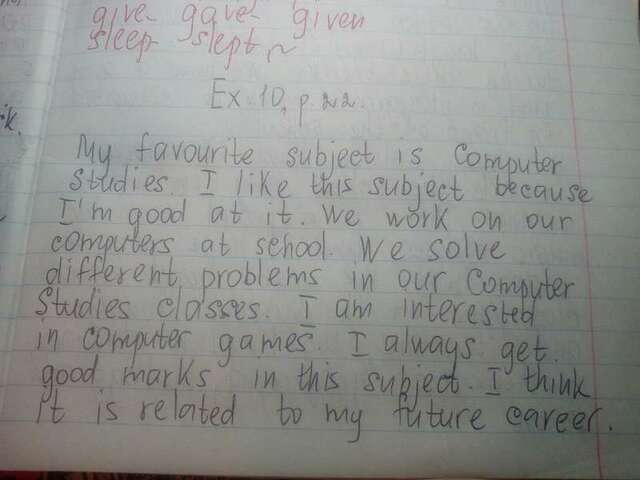 give - gave - given
sleep - slept ~
Ex. 10, p. 22.
My favourite subject is Computer
Studies. I like this subject because
I'm good at it. We work on our
computers at school. We solve
different problems in our Computer
Studies classes. I am interested
in computer games. I always get
good marks in this subject. I think
it is related to my future career.